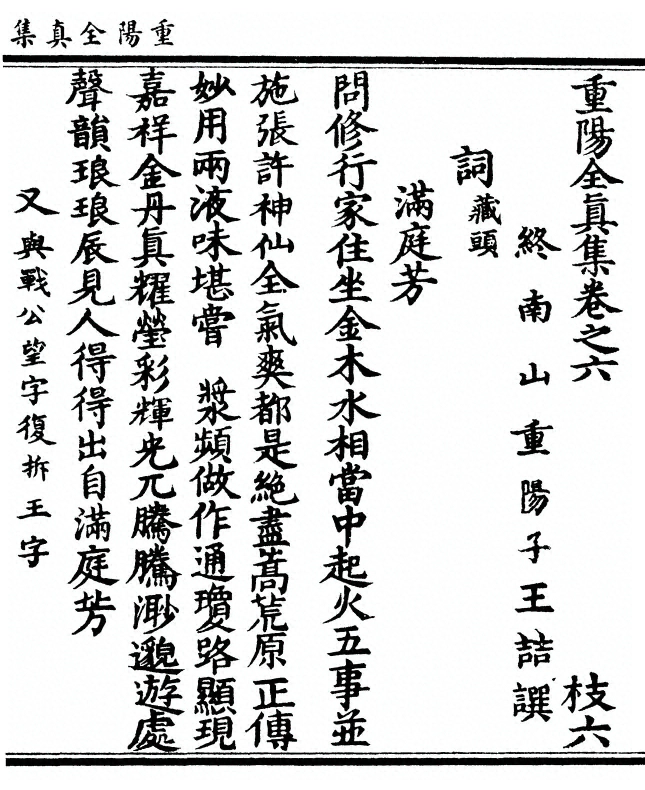 重陽全真集
重陽全眞集卷之六
枝六
終南山重陽子王嚞譔
詞藏頭
滿庭芳
問修行家住坐金木水相當中起火五事並
施張許神仙全氣爽都是絕盡蒿荒原正傳
妙用兩液味堪嘗 漿頻做作通瓊路顯現
嘉祥金丹眞耀瑩彩輝光兀騰騰渺邈遊處
聲韻琅琅辰見人得得出自滿庭芳
又與戰公望字復拆王字